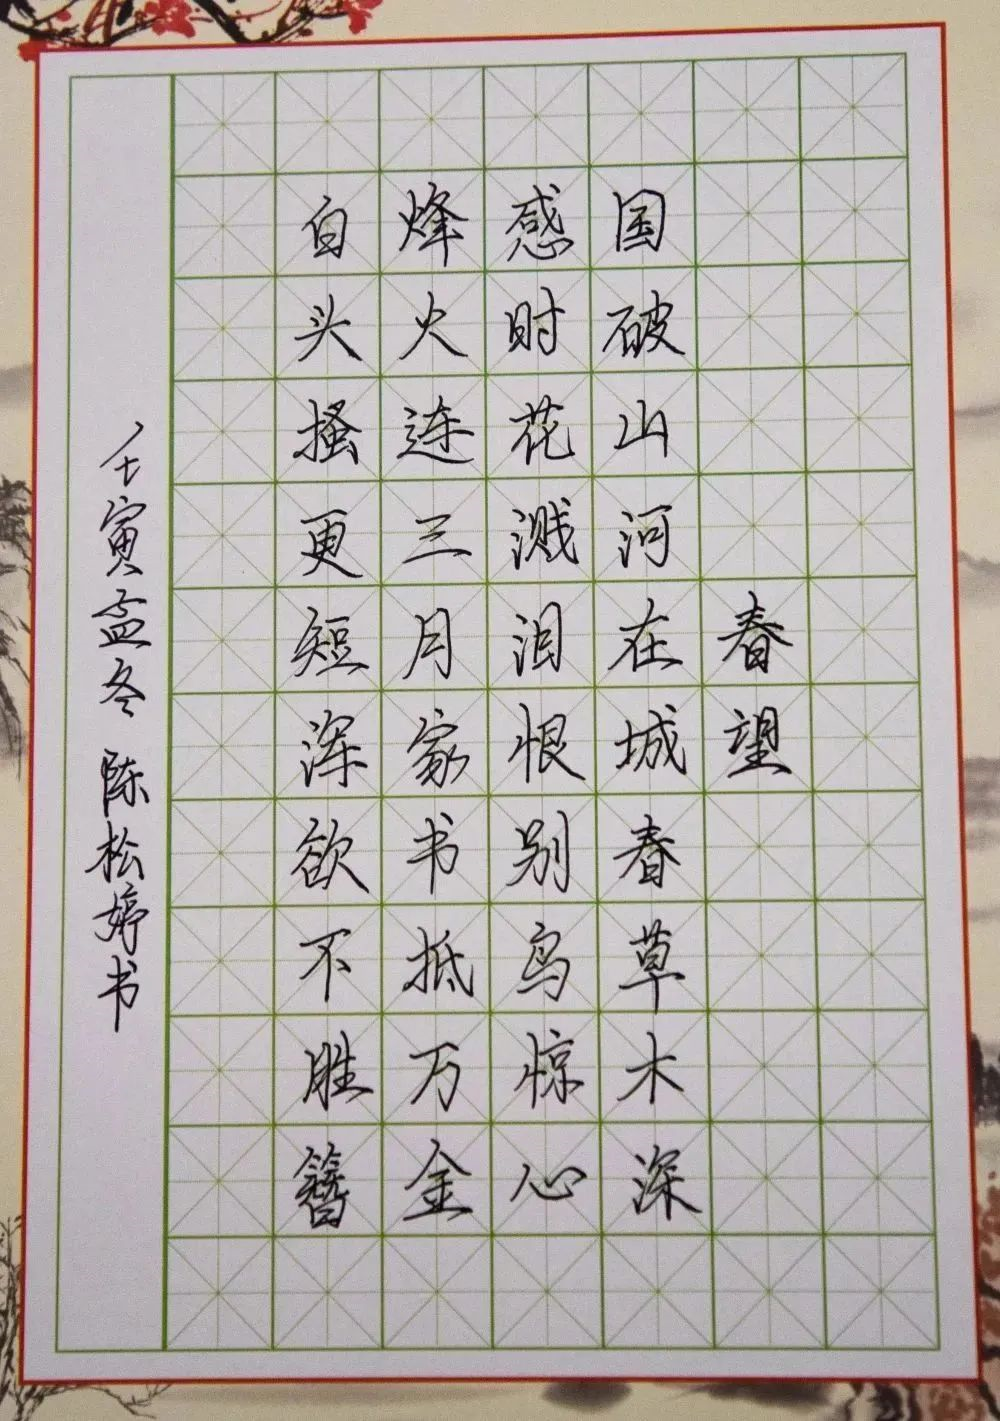 春望
国破山河在城春草木深
感时花溅泪恨别鸟惊心
烽火连三月家书抵万金
白头搔更短浑欲不胜簪
壬寅孟冬 陈松婷书